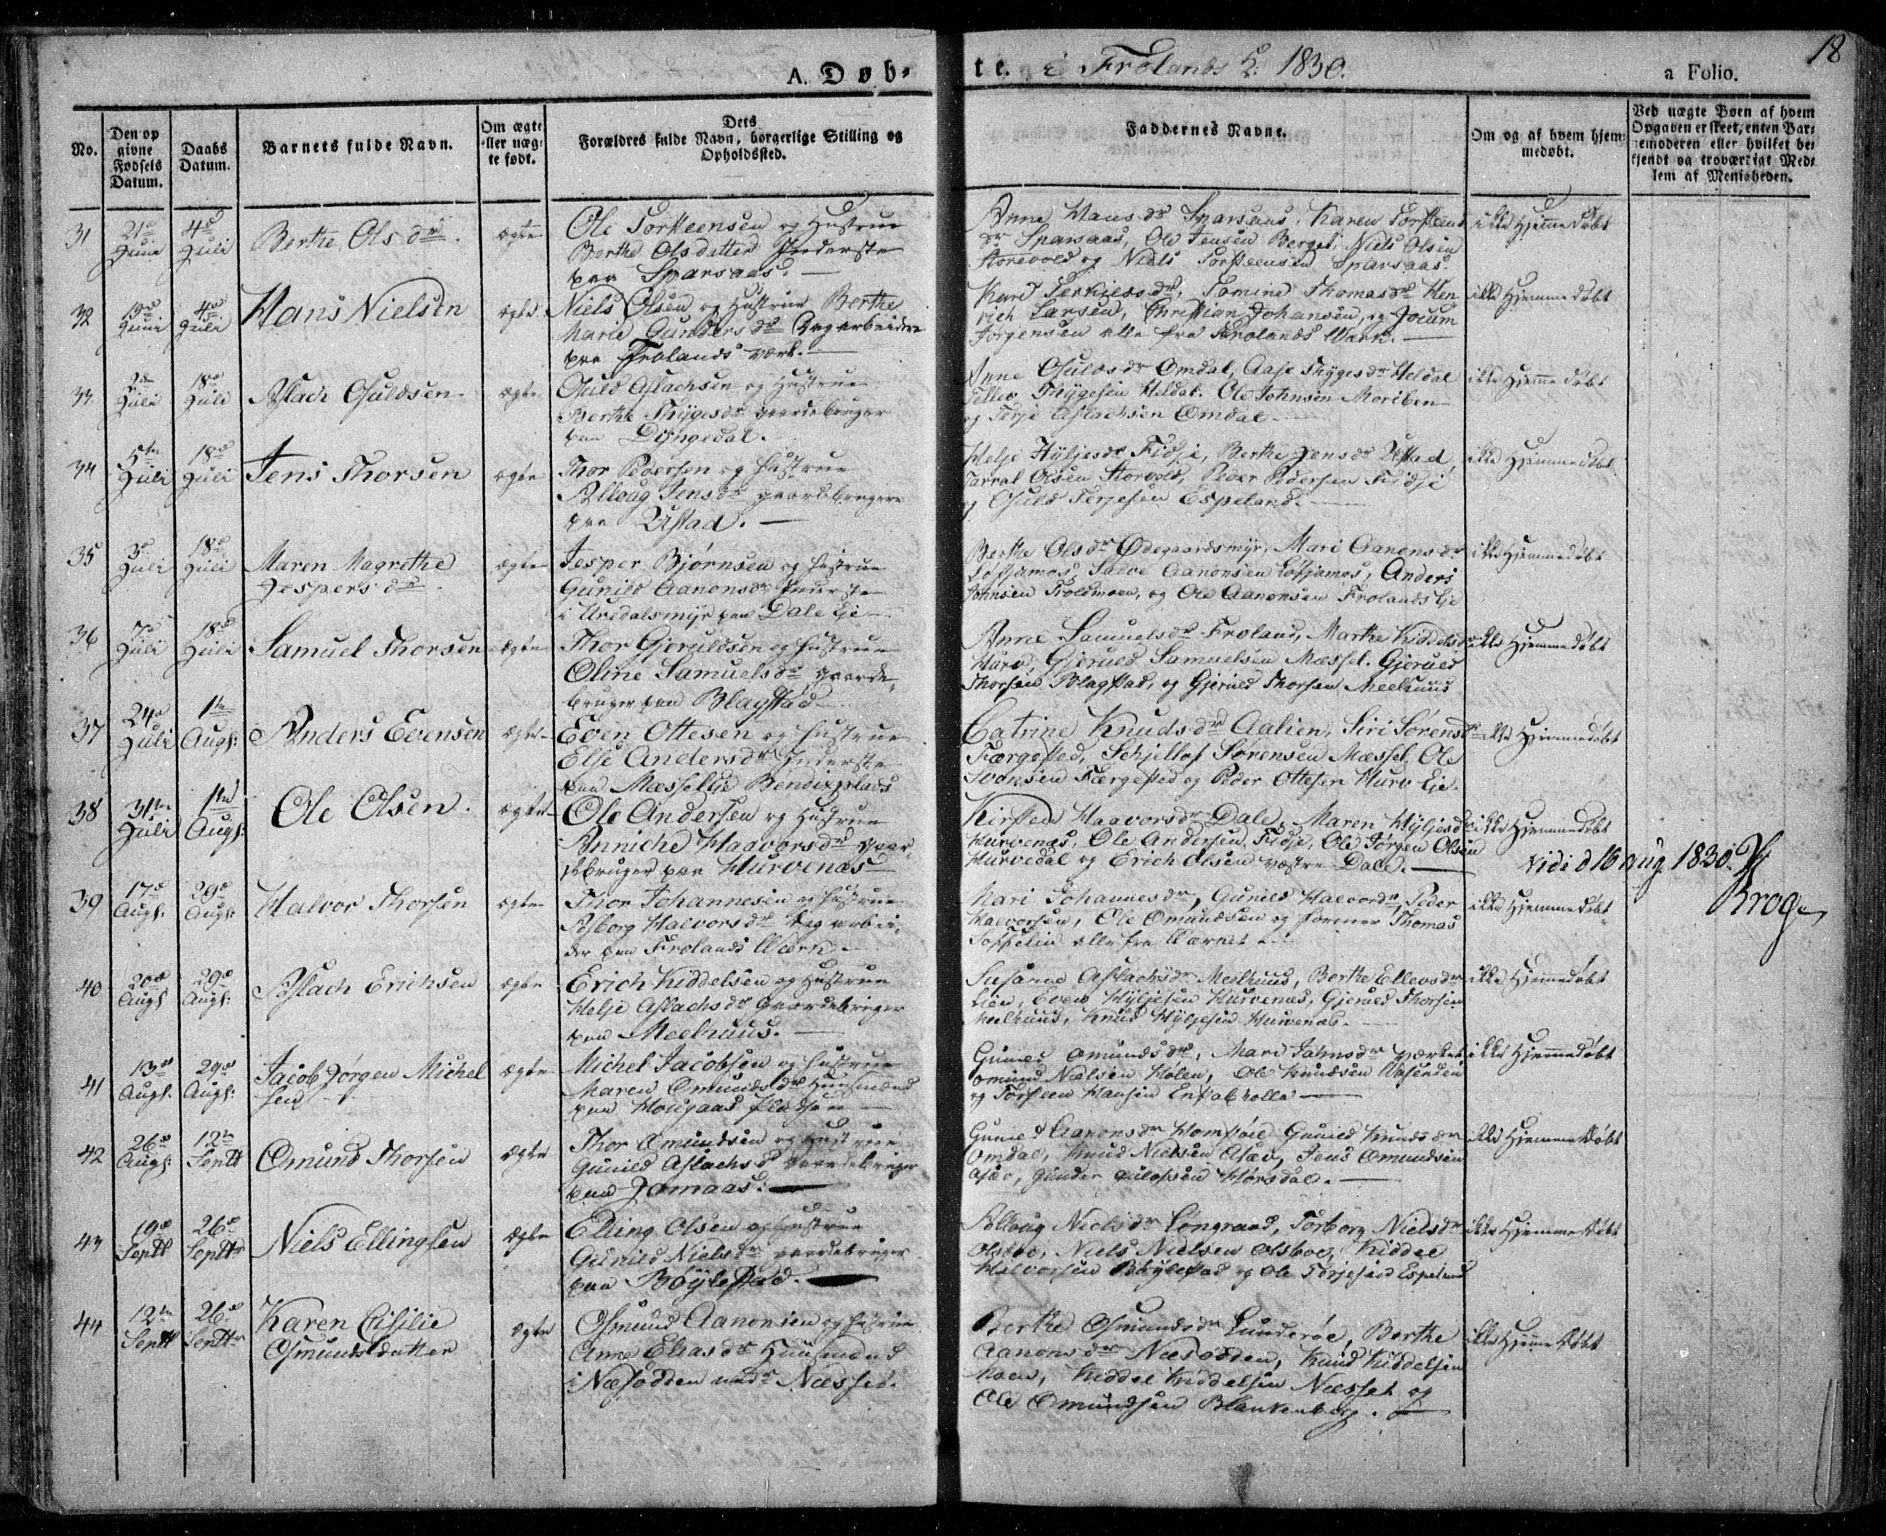 A. Døb- te. i Frolands S. 1830. a Folio. 18
No.
Den op givne Fødsels Datum.
Daabs Datum.
Barnets fulde Navn.
Om ægte eller uægte født.
Dets Forældres fulde Navn, borgerlige Stilling og Opholdssted.
Faddernes Navne.
Om og af hvem hjemmedøbt.
Ved uægte Børn af hvem Opgaven er skeet, enten Barnemoderen eller hvilket bekjendt og troværdigt Medlem af Menigheden.
31 Juni 4de Juli Berthe Olsdr. ægte
Ole Torsteensen og Hustrue
Berthe Olsdatter Inderste
paa Sparsaas.
Anne Hansdr Sparsaas, Karen Torsteens
dr Sparsaas, Ole Jensen Berget, Niels Olsen
Storevold og Niels Torsteensen Sparsaas.
ikke Hjemmedøbt
32 Juni 4de Juli Hans Nielsen ægte
Niels Olsen og Hustrue Berthe
Marie Gundersdr Dagarbeider
paa Frolands Værk.
Terkelsdr, Tomine Thomasdr Hen
rich Larsen, Christian Johansen, og
Jørgensen alle fra Frolands Værk.
ikke Hjemmedøbt
33 Juli 18de Juli Aslach Osuldsen ægte
Osuld Aslachsen og Hustrue
Berthe Thygesdr gaardebruger
paa
Anne Osuldsdr Omdal, Aase Thygesdr Heldal
Tellev Thygesen Heldal, Ole Johnsen Moripen
og Terje Aslachsen Omdal.
ikke Hjemmedøbt
34 5te Juli 18de Juli Jens Thorsen ægte
Thor Pedersen og Hustrue
Asloug Jensdr gaardebruger
paa Ustad.
Helje Hyljesdr Fidsje, Berthe Jensdr Ustad,
Tarral Olsen Storvold, Peder Pedersen Fidsje
og Osuld Terjesen Espeland.
ikke Hjemmedøbt
35 3de Juli 18de Juli Maren Magrethe
Jespersdr. ægte
Jesper Bjørnsen og Hustrue
Gunild Aanonsdr Inderste
i Ursdalsmyr paa Dale Eje
Berthe Olsdr Ødegaardsmyr, Mari Aanonsdr
Løfsjamos, Salve Aanonsen Løfsjamos, Anders
Johnsen Troldmoen, og Ole Aanonsen Frolands Eje
ikke Hjemmedøbt
36 7de Juli 18de Juli Samuel Thorsen ægte
Thor Gjeruldsen og Hustrue
Oline Samuelsdr gaarde-
bruger paa Blagstad.
Anne Samuelsdr Froland, Marthe Kiddelsdr
Hurv, Gjerued Samuelsen Mæssel, Gjerued
Thorsen Blagstad, og Gjeruld Thorsen Meelhuus
ikke Hjemmedøbt
37 24de Juli 1te Augs: Anders Evensen ægte
Even Ottesen og Hustrue
Else Andersdr Inderste
paa Mæsseleje Bendixplads
Catrine Knudsdr Aalien, Siri Sørensdr
Færgestad, Schjellof Sørensen Mæssel, Ole
Svensen Færgestad og Peder Ottesen Hurv Eje.
ikke Hjemmedøbt
38 31te Juli 1te Augs: Ole Olsen. ægte
Ole Andersen og Hustrue
Anniche Haavorsdr gaar-
debruger paa Hurvenæs
Kirsten Haavorsdr Dale, Maren Hyljesdr
Hurvenæs, Ole Andersen Fidsje, Ole Jørgen Olsen
Hurvedal og Erich Olsen Væstre Dale.
ikke Hjemmedøbt
Vidi d 16 Aug. 1830.
Krog
39 17de Augs: 29de Augs: Halvor Thorsen ægte
Thor Johannesen og Hustrue
Asborg Halvorsdr Dagarbei-
der paa Frolands Værk.
Mari Johannesdr, Gunild Halvorsdr, Peder
Halvorsen, Ole Omundsen og Former Thomas
alle fra Værket.
ikke Hjemmedøbt
40 20de Augs 29de Augs: Aslach Erichsen ægte
Erich Kiddelsen og Hustrue
Helje Aslachsdr Gaardebruger
paa Meelhuus.
Susanne Aslachsdr Meelhuus, Berthe Ellevsdr
Lien, Even Hyljesen Hurvenæs, Gjerued Thorsen
Meelhuus, Knud Hyljesen Hurvenæs.
ikke Hjemmedøbt
41 13de Augs: 29de Augs: Jacob Jørgen Michel
sen ægte
Michel Jacobsen og Hustrue
Maren Omundsdr Huusmænd
paa
Gunild Omundsdr, Mari Jahnsdr Værket
Omund Nielsen Holen, Ole Knudsen
og Torsteen Hansen
ikke Hjemmedøbt
42 26de Augs: 12te Septt Omund Thorsen ægte
Thor Omundsen og Hustrue
Gunild Aslachsd gaardebruger
paa Jomaas.
Gunild Aanonsdr, Gunild Knudsdr
Omdal, Knud Nielsen, Jens Omundsen
Gunder Hørsdal.
ikke Hjemmedøbt
43 19de Septt 26de Septtr Niels Ellingsen ægte
Elling Olsen og Hustrue
Gunild Nielsdr gaardebruger
paa Bøylestad.
Aslaug Nielsdr Longraad, Torborg Nielsdr
Olsboe, Niels Nielsen Olsboe, Kiddel
Halvorsen Bøylestad og Ole Terjesen Espeland
ikke Hjemmedøbt
44 12te Septt 26de Septtr Karen Cisilie
Osmundsdatter ægte
Osmund Aanonsen og Hustrue
Anne Eliasdr Huusmænd
i Næsodden under Næsset.
Berthe Osmundsdr Lunderøe, Berthe
Aanonsdr Næsodden, Knud Kiddelsen
Moen, Kiddel Kiddelsen Næsset og
Ole Omundsen Blankenberg.
ikke Hjemmedøbt